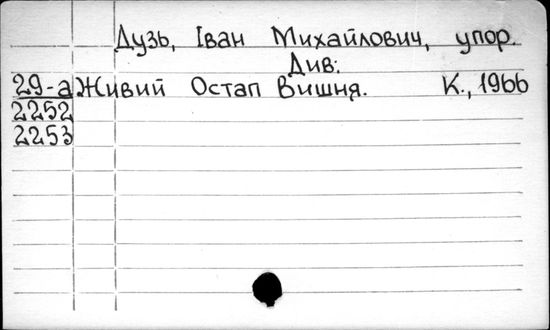 Дузь, Іван Михайлович, упор.
Див:
29-а Живий Остап Вишня. К., 1966
2252
2253